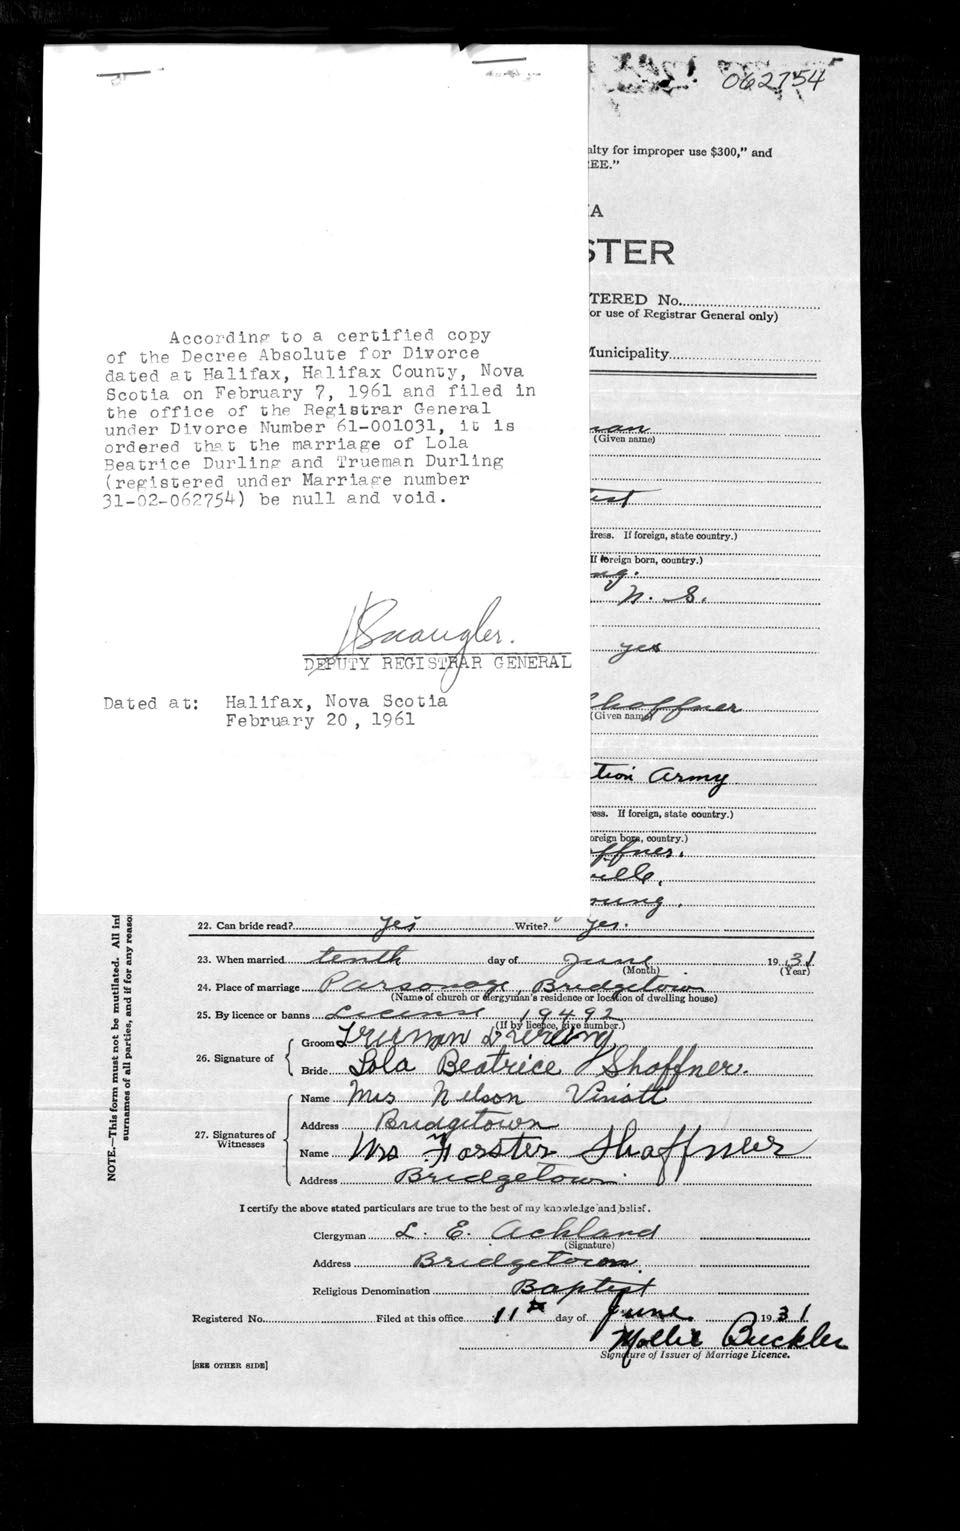 062754
alty for improper use $300," and
EE."
A
STER
TERED No.
or use of Registrar General only)
Municipality
According to a certified copy
of the Decree Absolute for Divorce
dated at Halifax, Halifax County, Nova
Scotia on February 7, 1961 and filed in
the office of the Registrar General
under Divorce Number 61-001031, it is
ordered that the marriage of Lola
Beatrice Durling and Trueman Durling
(registered under Marriage number
31-02-062754) be null and void.
DEPUTY REGISTRAR GENERAL
Dated at: Halifax, Nova Scotia
February 20, 1961
man
(Given name)
tist
dress. If foreign, state country.)
If foreign born, country.)
ng.
N. S.
yes
Shaffner
(Given name)
tion Army
ess. If foreign, state country.)
oreign born, country.)
affner.
ville,
oung.
22. Can bride read? Yes Write? Yes.
23. When married tenth day of June 1931
(Month) (Year)
24. Place of marriage Parsonage, Bridgetown
(Name of church or clergyman's residence or location of dwelling house)
25. By licence or banns License 19492
(If by licence, give number.)
26. Signature of
Groom Truman Durling
Bride Lola Beatrice Shaffner.
27. Signatures of Witnesses
Name Mrs Nelson
Address Bridgetown
Name Mrs Forster Shaffner
Address Bridgetown
I certify the above stated particulars are true to the best of my knowledge and belief.
Clergyman L. E. Ackland
(Signature)
Address Bridgetown.
Religious Denomination Baptist
Registered No. Filed at this office 11th day of June 1931
Mollie Buckler
Signature of Issuer of Marriage Licence.
[SEE OTHER SIDE]
NOTE.—This form must not be mutilated. All inf
surnames of all parties, and if for any reaso